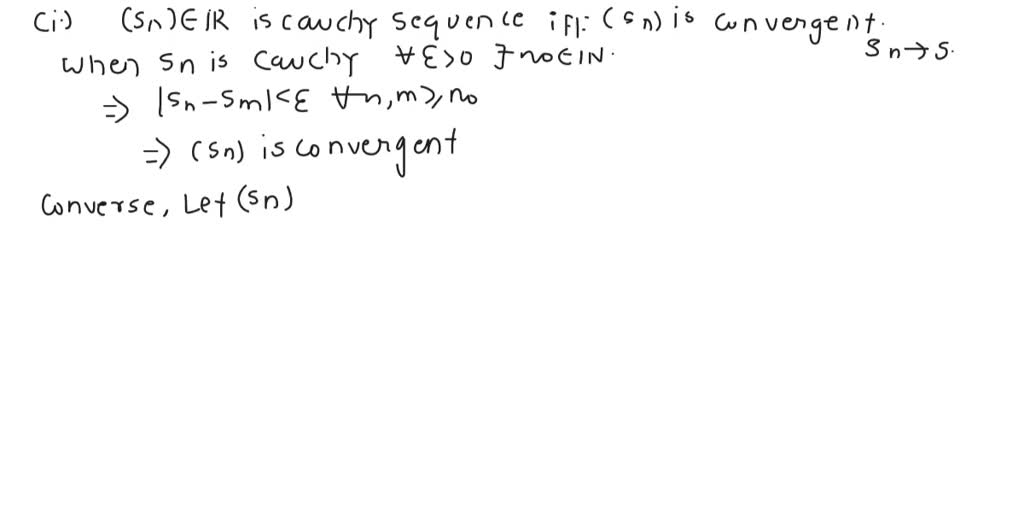 (i) (Sn)∈ℝ is cauchy sequence iff: (sn) is convergent.
Sn→S.
when sn is cauchy ∀ε>0 ∃ no∈ℕ.
⇒ |sn-sm|<ε ∀n,m≥no
⇒ (sn) is convergent
Converse, Let (sn)